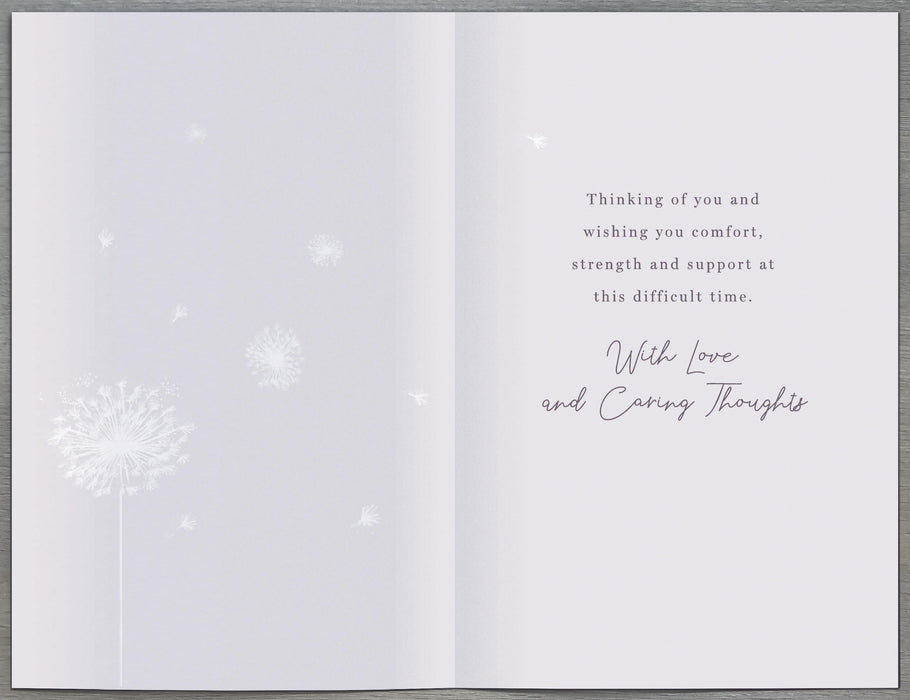 Thinking of you and
wishing you comfort,
strength and support at
this difficult time.
With Love
and Caring Thoughts